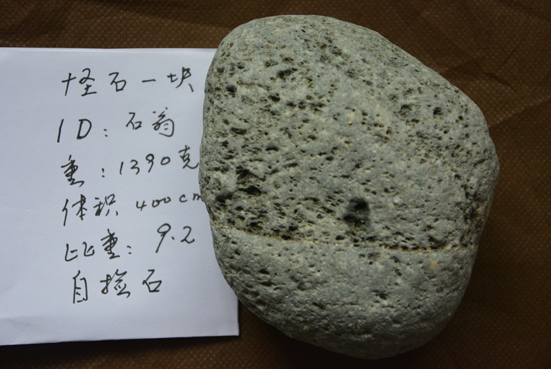 怪石一块
ID: 石翁
重: 1390克
体积 400cm
比重: 9.2
自捡石